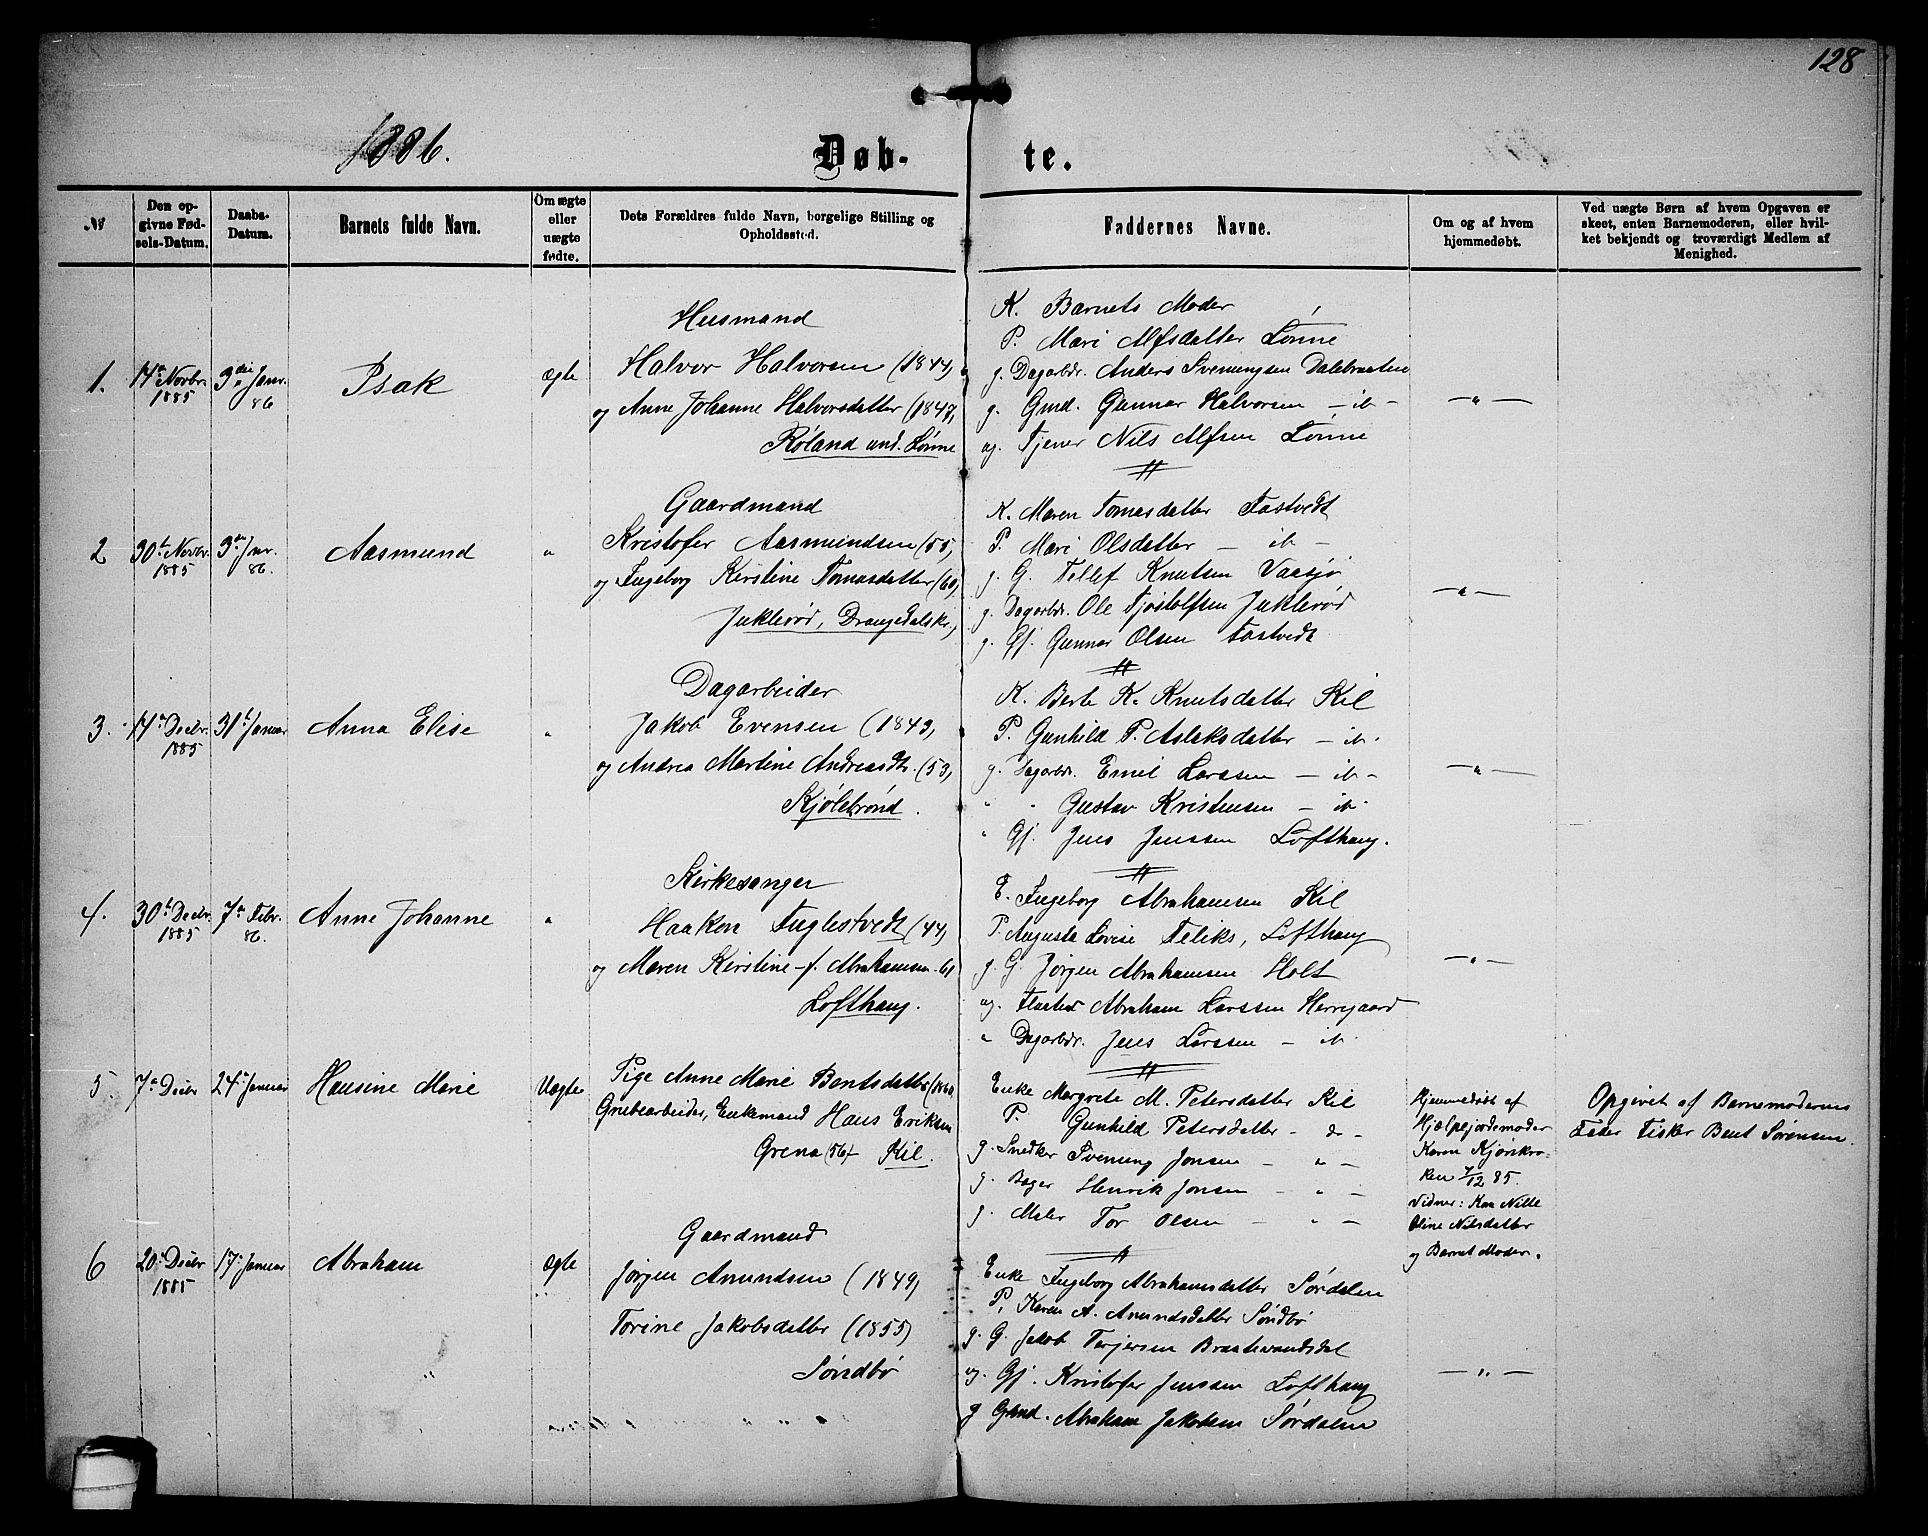 128
1886.
Døb- te.
№
Den op-
givne Fød-
sels-Datum.
Daabs-
Datum.
Barnets fulde Navn.
Om ægte
eller
uægte
fødte.
Dets Forældres fulde Navn, borgelige Stilling og
Opholdssted.
Faddernes Navne.
Om og af hvem
hjemmedøbt.
Ved uægte Børn af hvem Opgaven er
skeet, enten Barnemoderen, eller hvil-
ket bekjendt og troværdigt Medlem af
Menighed.
1.
Novbr.
1885
3die Janr.
86
Isak
Ægte
Husmand
Halvor Halvorsen (1844,
og Anne Johanne Halvorsdatter (1847,
Røland und. Lønne
K. Barnets Moder
P. Mari Alfsdatter Lønne
g. Dagarbdr. Anders Sveningsen Dalebraaten
g. Gmd. Gunnar Halvorsen - ib -
ug. Tjener Nils Alfsen Lønne
— " —
2
30te Novbr.
1885
3die Janr.
86.
Aasmund
"
Gaardmand
Kristofer Aasmundsen (55,
og Ingeborg Kirstine Tomasdatter (60,
Juklerød, Drangedalskr.,
K. Maren Tomasdatter Tastvedt
P. Mari Olsdatter - ib -
g. G. Tellef Knutsen Vaasjø
g. Dagarbdr. Ole Tjostolfsen Juklerød
g. Gj. Gunnar Olsen Tastvedt
— " —
3.
Decbr.
1885
31te Januar
Anna Elise
"
Dagarbeider
Jakob Evensen (1843,
og Andrea Martine Andreasdtr. (53,
Kjølebrønd.
K. Berte K. Knutsdatter Kil
P. Gunhild P. Aslaksdatter - ib -
g. Dagarbdr. Emil Larssen - ib -
" " Gustav Kristensen - ib -
" Gj. Jens Jenssen Lofthaug.
— " —
4.
30te Decbr.
1885
7de Febr.
86.
Anne Johanne
"
Kirkesanger
Haakon Fuglestvedt (44,
og Maren Kirstine - f. Abrahamsen - 61
Lofthaug.
E. Ingeborg Abrahamsen Kil
P. Augusta Lovise Feliks, Lofthaug
g. G. Jørgen Abrahamsen Holt
ug. Abraham Larssen Herregaard
" Dagarbdr. Jens Larssen - ib
— " —
5.
7de Decbr
24de Januar
Hansine Marie
Uægte
Pige Anne Marie Bentsdatter
Grubearbeider, Enkemand Hans Eriksen
Grena (56) - Kil.
Enke Margrete M. Petersdatter Kil
P. Gunhild Petersdatter - do -
g. Snedker Svening Jonsen - " -
g. Bager Henrik Jonsen - " -
g. Maler Tor Olsen - " -
Hjemmedøbt af
Hjælpejordemoder
Karen Kjørikro-
ken 7/12 85.
Vidner: Kone Nille
Oline Nilsdatter
og Barnets Moder.
Opgivet af Barnemoderens
Fader Fisker Bent Sørensen.
6
20de Decbr
1885
17de Januar
Abraham
Ægte
Gaardmand
Jørgen Amundsen (1849,
Torine Jakobsdatter (1855)
Søndbø
Enke Ingeborg Abrahamsdatter Sørdalen
P. Karen A. Amundsdatter Søndbø
g. G. Jakob Terjersen Braatevandsdal
ug. Gj. Kristofer Jenssen Lofthaug
g Gmd. Abraham Jakobsen Sørdalen
— " —